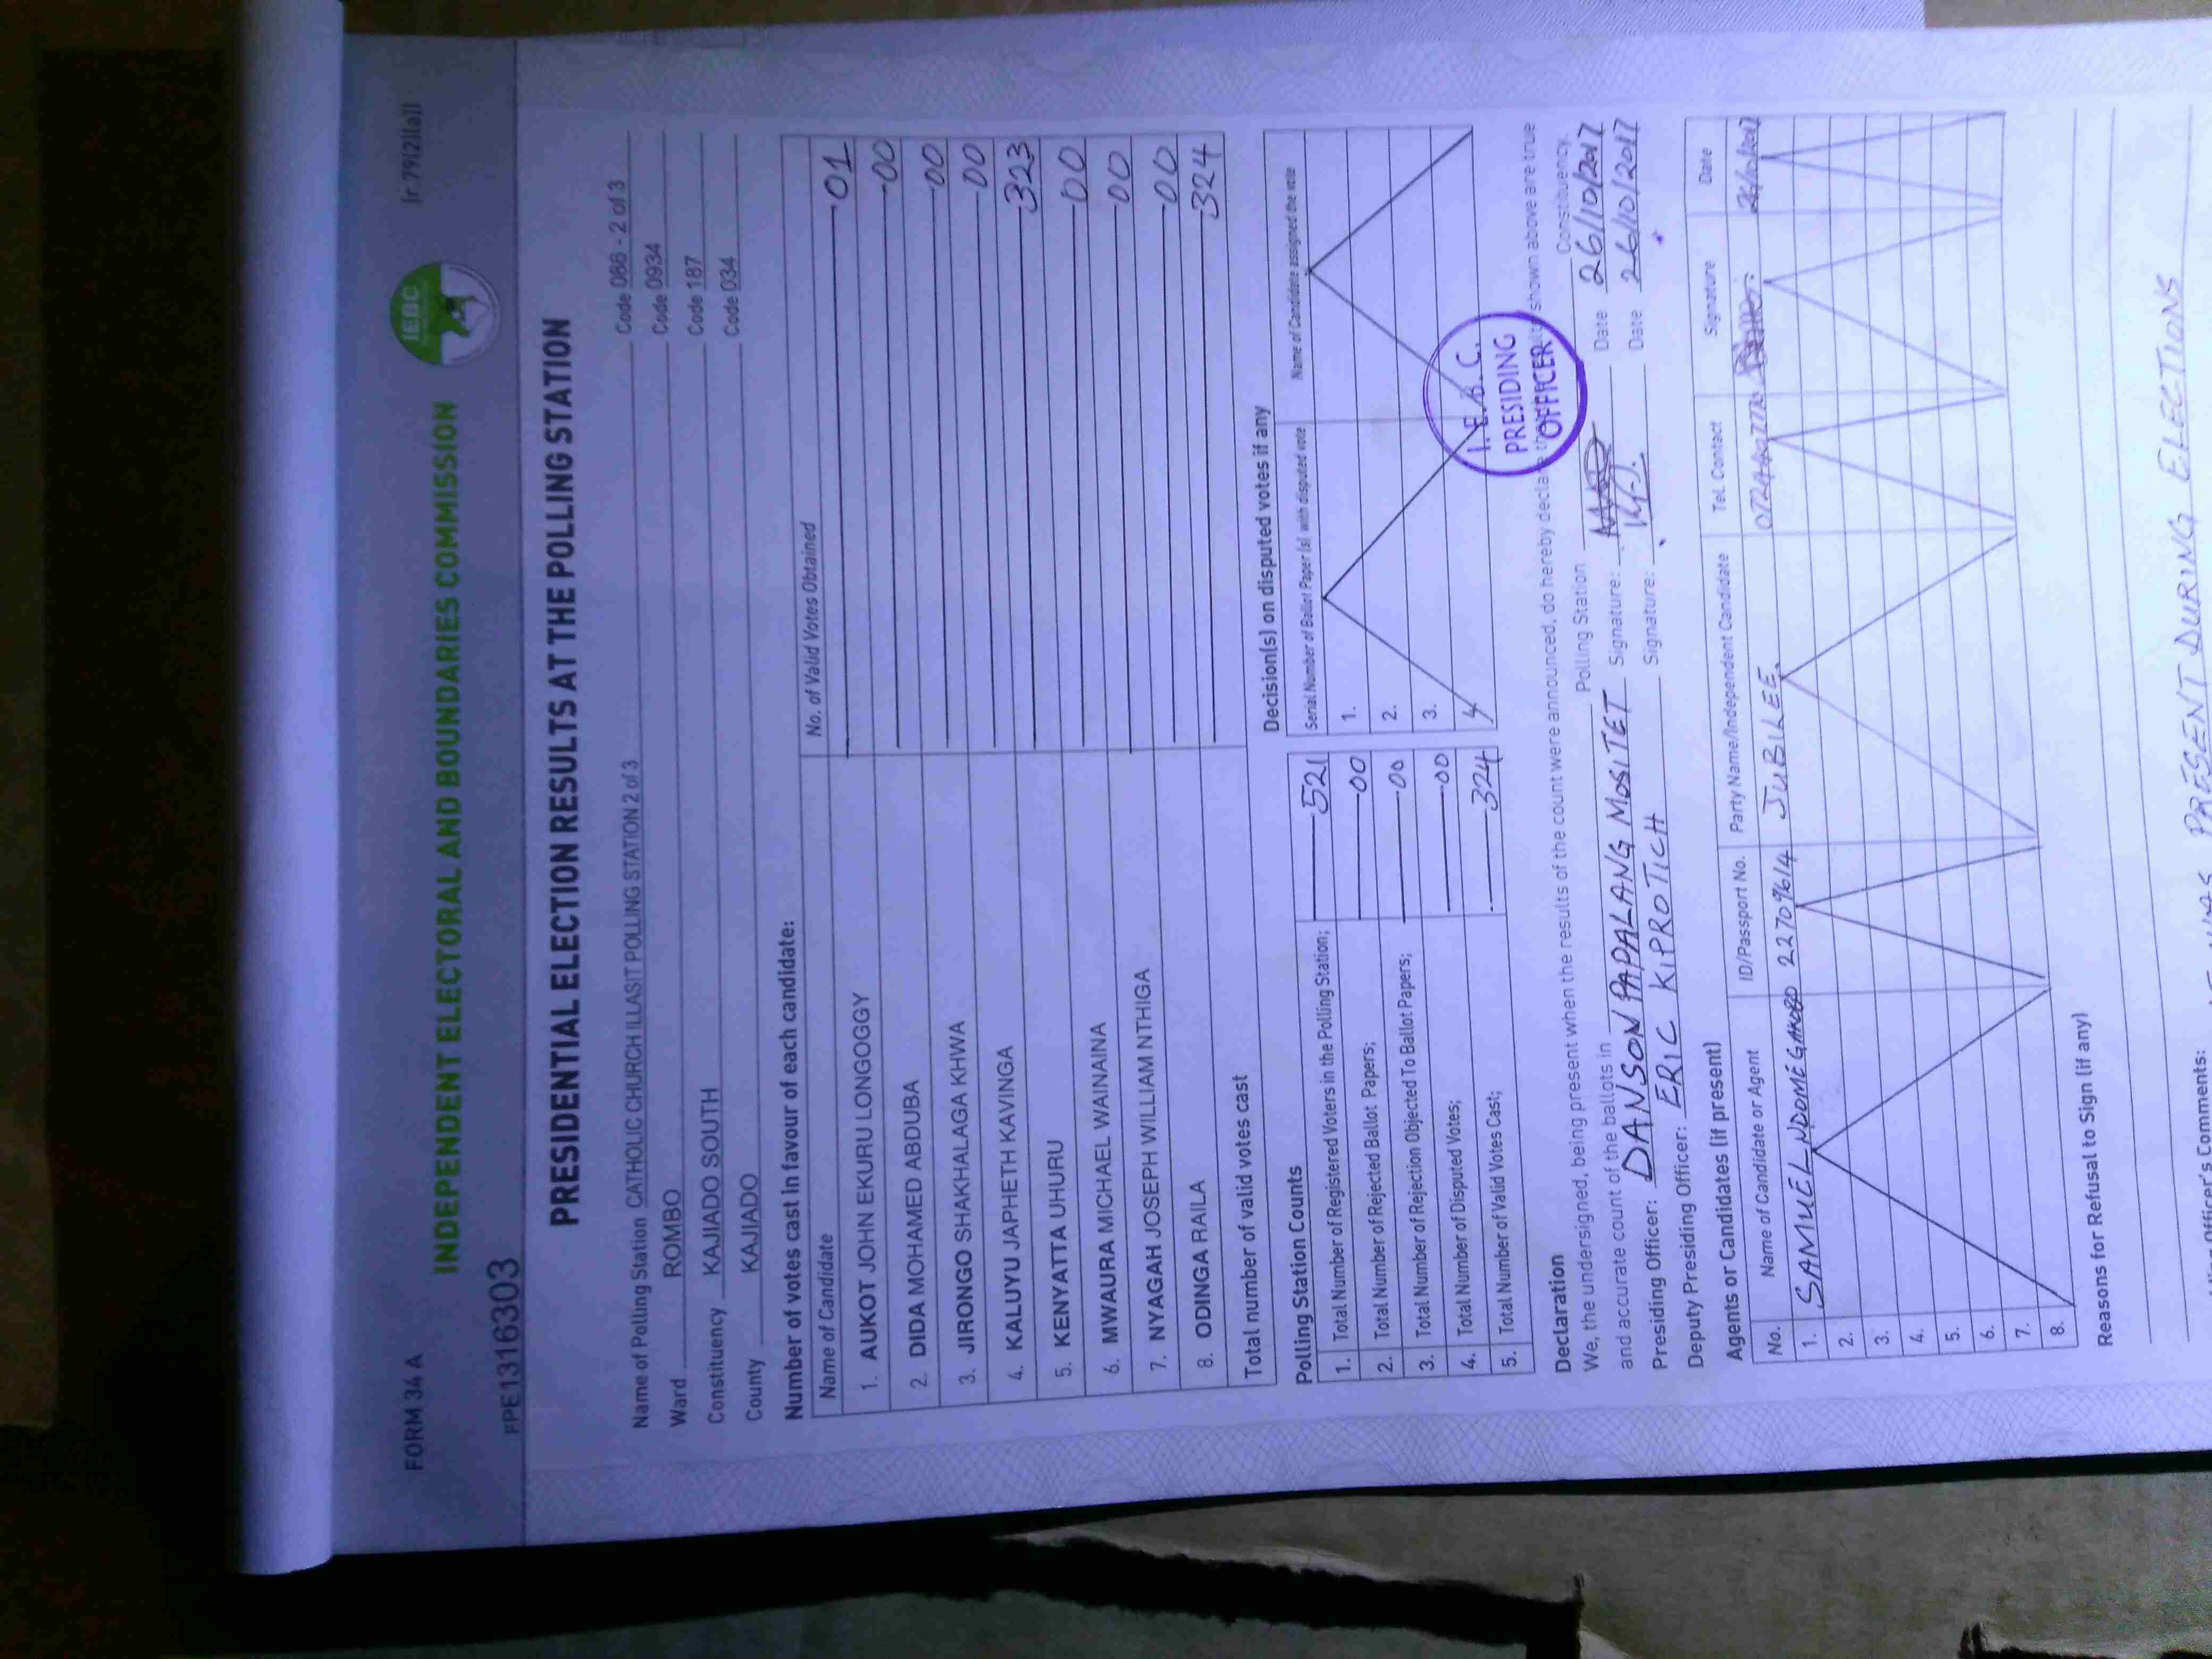 FORM 34 A
[r 79(2)(a)]
IEBC
INDEPENDENT ELECTORAL AND BOUNDARIES COMMISSION
FPE1316303
PRESIDENTIAL ELECTION RESULTS AT THE POLLING STATION
Name of Polling Station CATHOLIC CHURCH ILLASIT POLLING STATION 2 of 3 Code 086 - 2 of 3
Ward ROMBO Code 0934
Constituency KAJIADO SOUTH Code 187
County KAJIADO Code 034
Number of votes cast in favour of each candidate:
Name of Candidate No. of Valid Votes Obtained
1. AUKOT JOHN EKURU LONGOGGY 01
2. DIDA MOHAMED ABDUBA 00
3. JIRONGO SHAKHALAGA KHWA 00
4. KALUYU JAPHETH KAVINGA 00
5. KENYATTA UHURU 323
6. MWAURA MICHAEL WAINAINA 00
7. NYAGAH JOSEPH WILLIAM NTHIGA 00
8. ODINGA RAILA 00
Total number of valid votes cast 324
Polling Station Counts
1. Total Number of Registered Voters in the Polling Station; 521
2. Total Number of Rejected Ballot Papers; 00
3. Total Number of Rejection Objected To Ballot Papers; 00
4. Total Number of Disputed Votes; 00
5. Total Number of Valid Votes Cast; 324
Decision(s) on disputed votes if any
Serial Number of Ballot Paper (s) with disputed vote Name of Candidate assigned the vote
1.
2.
3.
4
I.E.B.C.
PRESIDING
OFFICER
Declaration
We, the undersigned, being present when the results of the count were announced, do hereby declare shown above are true
and accurate count of the ballots in Polling Station Constituency.
Presiding Officer: DANSON PAPALANG MOSITET Signature: Date 26/10/2017
Deputy Presiding Officer: ERIC KIPROTICH Signature: Date 26/10/2017
Agents or Candidates (if present)
No. Name of Candidate or Agent ID/Passport No. Party Name/Independent Candidate Tel. Contact Signature Date
1. SAMUEL 22709614 JUBILEE 26/10/2017
2.
3.
4.
5.
6.
7.
8.
Reasons for Refusal to Sign (if any)
Officer's Comments:
PRESENT DURING ELECTIONS